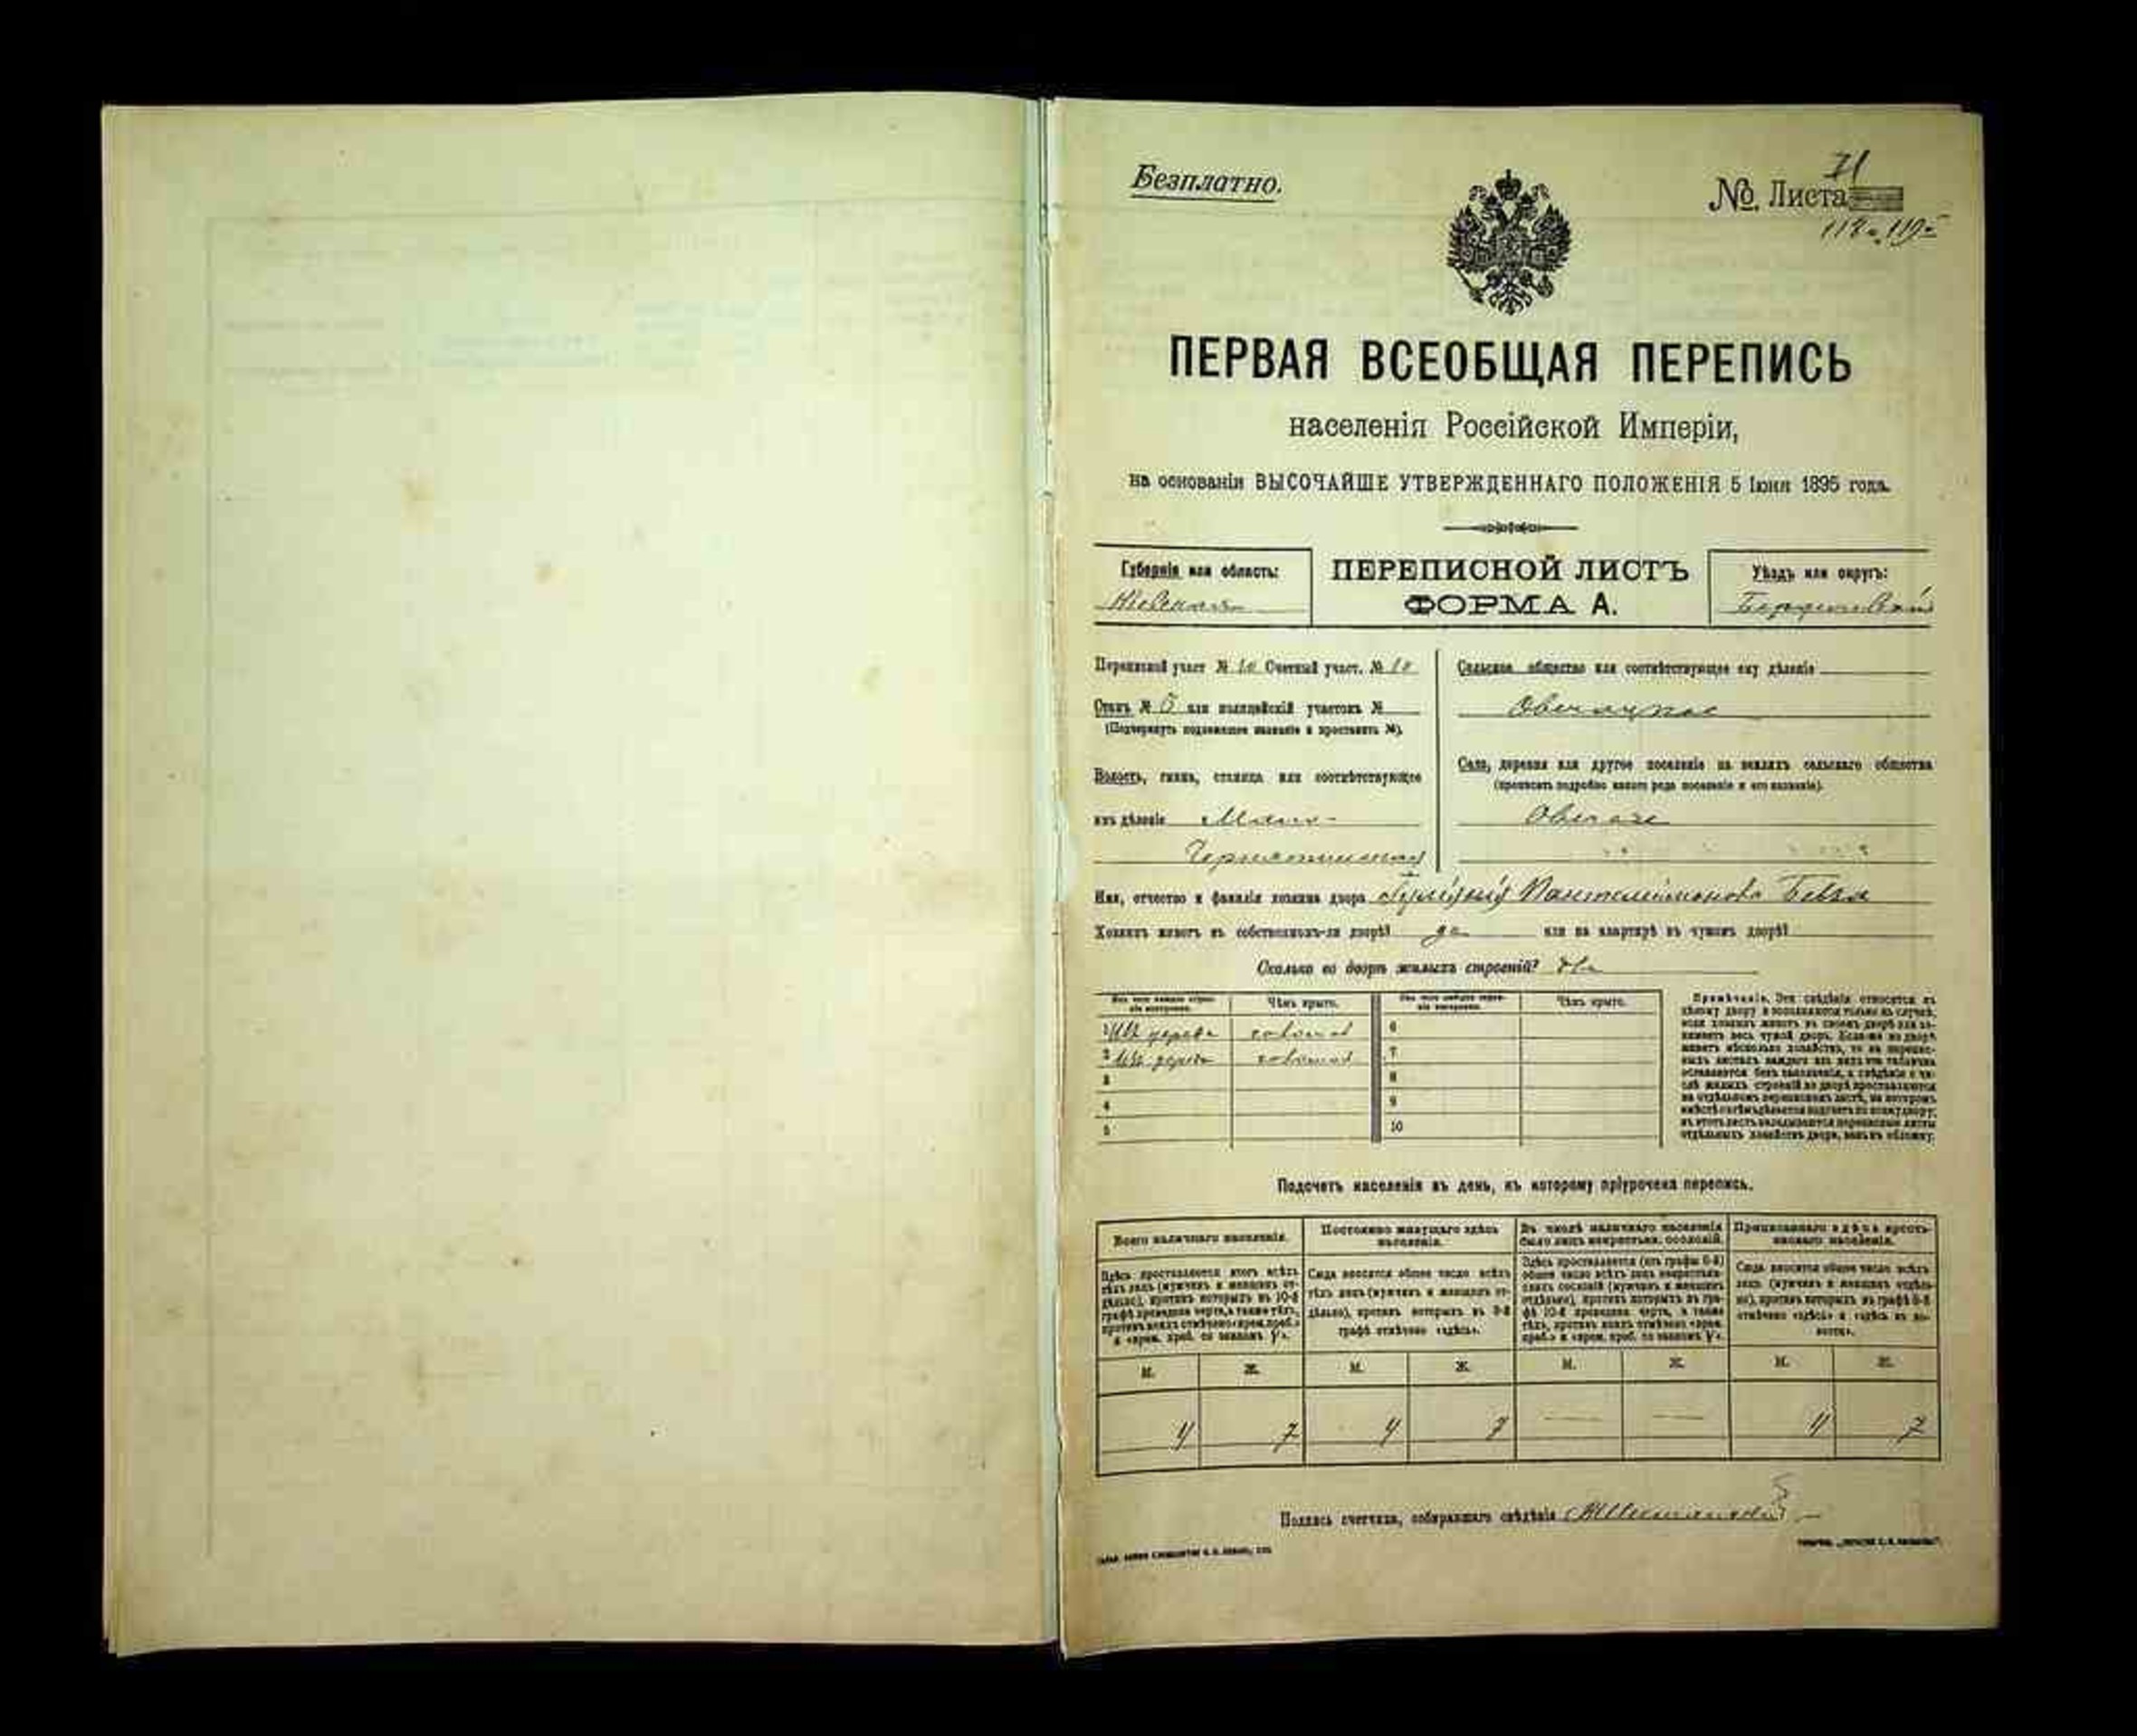 Безплатно.
№. Листа 71
118 и 119
ПЕРВАЯ ВСЕОБЩАЯ ПЕРЕПИСЬ
населенія Россійской Имперіи,
на основаніи ВЫСОЧАЙШЕ УТВЕРЖДЕННАГО ПОЛОЖЕНІЯ 5 Іюня 1895 года.
Губернія или область:
Кіевская
ПЕРЕПИСНОЙ ЛИСТЪ
ФОРМА А.
Уѣздъ или округъ:
Бердичевскій
Переписной участ № 10 Счетный участ. № 10
Станъ № 5 или полицейскій участокъ №
(Подчеркнуть подлежащее названіе и проставить №).
Волость, гмина, станица или соотвѣтствующее
имъ дѣленіе Мало-
Чернятинская
Сельское общество или соотвѣтствующее ему дѣленіе
Село, деревня или другое поселеніе на земляхъ сельскаго общества
(прописать подробно какого рода поселеніе и его названіе).
Имя, отчество и фамилія хозяина двора Пантелеимоновъ Бевза
Хозяинъ живетъ въ собственномъ-ли дворѣ? да или на квартирѣ въ чужомъ дворѣ?
Сколько во дворѣ жилыхъ строеній? два
Изъ чего каждое строеніе построено. Чѣмъ крыто. Изъ чего каждое строеніе построено. Чѣмъ крыто.
1 Изъ дерева соломой 6
2 Изъ дерева соломой 7
3 8
4 9
5 10
Примѣчаніе. Эти свѣдѣнія относятся къ
цѣлому двору и заполняются только въ случаѣ,
если хозяинъ живетъ въ своемъ дворѣ или за-
нимаетъ весь чужой дворъ. Если-же во дворѣ
живетъ нѣсколько хозяйствъ, то на перепис-
ныхъ листахъ каждаго изъ нихъ эта табличка
оставляется безъ заполненія, а свѣдѣнія о чи-
слѣ жилыхъ строеній во дворѣ проставляются
на отдѣльномъ переписномъ листѣ, на которомъ
вмѣстѣ съ тѣмъ дѣлается подсчетъ по всему двору;
въ этотъ листъ вкладываются переписные листы
отдѣльныхъ хозяйствъ двора, какъ въ обложку.
Подсчетъ населенія въ день, къ которому пріурочена перепись.
Всего наличнаго населенія.
Здѣсь проставляется итогъ всѣхъ
тѣхъ лицъ (мужчинъ и женщинъ от-
дѣльно), противъ которыхъ въ 10-й
графѣ проведена черта, а также тѣхъ,
противъ коихъ отмѣчено «врем. преб.»
и «врем. преб. со знакомъ V».
Постоянно живущаго здѣсь
населенія.
Сюда вносится общее число всѣхъ
тѣхъ лицъ (мужчинъ и женщинъ от-
дѣльно), противъ которыхъ въ 9-й
графѣ отмѣчено «здѣсь».
Въ числѣ наличнаго населенія
было лицъ некрестьян. сословій.
Здѣсь проставляется (изъ графы 6-й)
общее число всѣхъ лицъ некрестьян-
скихъ сословій (мужчинъ и женщинъ
отдѣльно), противъ которыхъ въ гра-
фѣ 10-й проведена черта, а также
тѣхъ, противъ коихъ отмѣчено «врем.
преб.» и «врем. преб. со знакомъ V».
Приписаннаго здѣсь кресть-
янскаго населенія.
Сюда вносится общее число всѣхъ
лицъ (мужчинъ и женщинъ отдѣль-
но), противъ которыхъ въ графѣ 8-й
отмѣчено «здѣсь» и «здѣсь въ во-
лости».
М. Ж. М. Ж. М. Ж. М. Ж.
4 7 4 7 — — 4 7
Подпись счетчика, собиравшаго свѣдѣнія